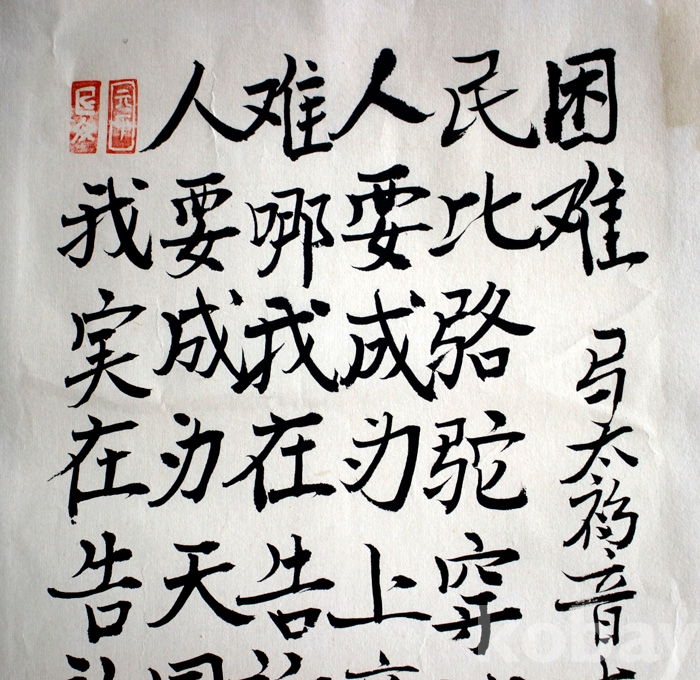 我实在告
人要成为天
难哪我在告
人要成为上
民比骆驼穿
困难
马太福音
kobay